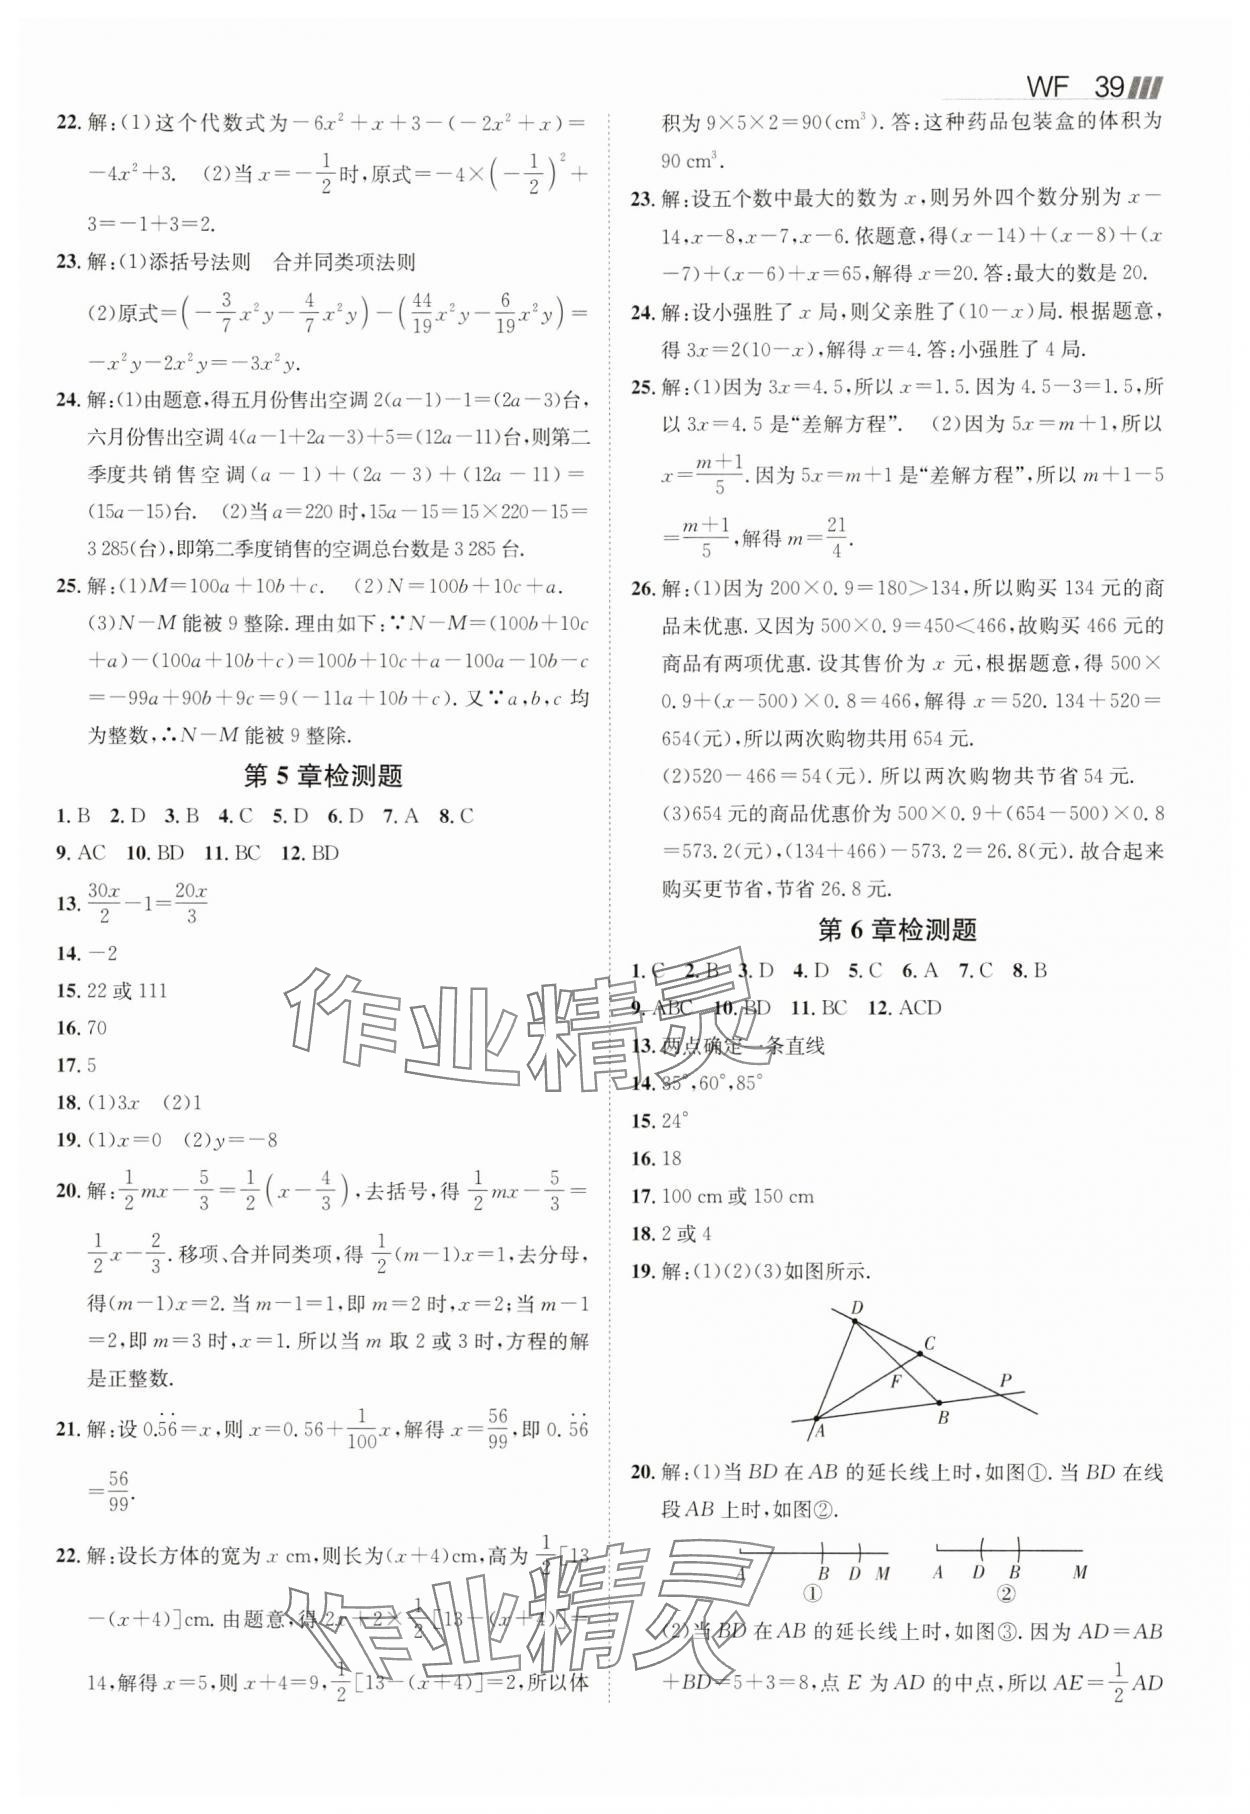 WF 39
22. 解:(1)这个代数式为－6x²＋x＋3－(－2x²＋x)＝
－4x²＋3. (2)当x＝－1/2时,原式＝－4×(－1/2)²＋
3＝－1＋3＝2.
23. 解:(1)添括号法则 合并同类项法则
(2)原式＝(－3/7x²y－4/7x²y)－(44/19x²y－6/19x²y)＝
－x²y－2x²y＝－3x²y.
24. 解:(1)由题意,得五月份售出空调2(a－1)－1＝(2a－3)台,
六月份售出空调4(a－1＋2a－3)＋5＝(12a－11)台,则第二
季度共销售空调(a－1)＋(2a－3)＋(12a－11)＝
(15a－15)台. (2)当a＝220时,15a－15＝15×220－15＝
3 285(台),即第二季度销售的空调总台数是3 285台.
25. 解:(1)M＝100a＋10b＋c. (2)N＝100b＋10c＋a.
(3)N－M能被9整除.理由如下:∵N－M＝(100b＋10c
＋a)－(100a＋10b＋c)＝100b＋10c＋a－100a－10b－c
＝－99a＋90b＋9c＝9(－11a＋10b＋c).又∵a,b,c均
为整数,∴N－M能被9整除.
第5章检测题
1. B 2. D 3. B 4. C 5. D 6. D 7. A 8. C
9. AC 10. BD 11. BC 12. BD
13. 30x/2－1＝20x/3
14. －2
15. 22或111
16. 70
17. 5
18. (1)3x (2)1
19. (1)x＝0 (2)y＝－8
20. 解:1/2mx－5/3＝1/2(x－4/3),去括号,得1/2mx－5/3＝
1/2x－2/3.移项、合并同类项,得1/2(m－1)x＝1,去分母,
得(m－1)x＝2.当m－1＝1,即m＝2时,x＝2;当m－1
＝2,即m＝3时,x＝1.所以当m取2或3时,方程的解
是正整数.
21. 解:设0.5̇6̇＝x,则x＝0.56＋1/100x,解得x＝56/99,即0.5̇6̇
＝56/99.
22. 解:设长方体的宽为x cm,则长为(x＋4)cm,高为1/2[13
－(x＋4)]cm.由题意,得2x＋2×1/2[13－(x＋4)]＝
14,解得x＝5,则x＋4＝9,1/2[13－(x＋4)]＝2,所以体
积为9×5×2＝90(cm³).答:这种药品包装盒的体积为
90 cm³.
23. 解:设五个数中最大的数为x,则另外四个数分别为x－
14,x－8,x－7,x－6.依题意,得(x－14)＋(x－8)＋(x
－7)＋(x－6)＋x＝65,解得x＝20.答:最大的数是20.
24. 解:设小强胜了x局,则父亲胜了(10－x)局.根据题意,
得3x＝2(10－x),解得x＝4.答:小强胜了4局.
25. 解:(1)因为3x＝4.5,所以x＝1.5.因为4.5－3＝1.5,所
以3x＝4.5是“差解方程”. (2)因为5x＝m＋1,所以
x＝m＋1/5.因为5x＝m＋1是“差解方程”,所以m＋1－5
＝m＋1/5,解得m＝21/4.
26. 解:(1)因为200×0.9＝180＞134,所以购买134元的商
品未优惠.又因为500×0.9＝450＜466,故购买466元的
商品有两项优惠.设其售价为x元,根据题意,得500×
0.9＋(x－500)×0.8＝466,解得x＝520.134＋520＝
654(元),所以两次购物共用654元.
(2)520－466＝54(元).所以两次购物共节省54元.
(3)654元的商品优惠价为500×0.9＋(654－500)×0.8
＝573.2(元),(134＋466)－573.2＝26.8(元).故合起来
购买更节省,节省26.8元.
第6章检测题
1. C 2. B 3. D 4. D 5. C 6. A 7. C 8. B
9. ABC 10. BD 11. BC 12. ACD
13. 两点确定一条直线
14. 35°,60°,85°
15. 24°
16. 18
17. 100 cm或150 cm
18. 2或4
19. 解:(1)(2)(3)如图所示.
D
C
F
P
A
B
20. 解:(1)当BD在AB的延长线上时,如图①.当BD在线
段AB上时,如图②.
A B D M
①
A D B M
②
(2)当BD在AB的延长线上时,如图③.因为AD＝AB
＋BD＝5＋3＝8,点E为AD的中点,所以AE＝1/2AD
作业精灵
作业精灵